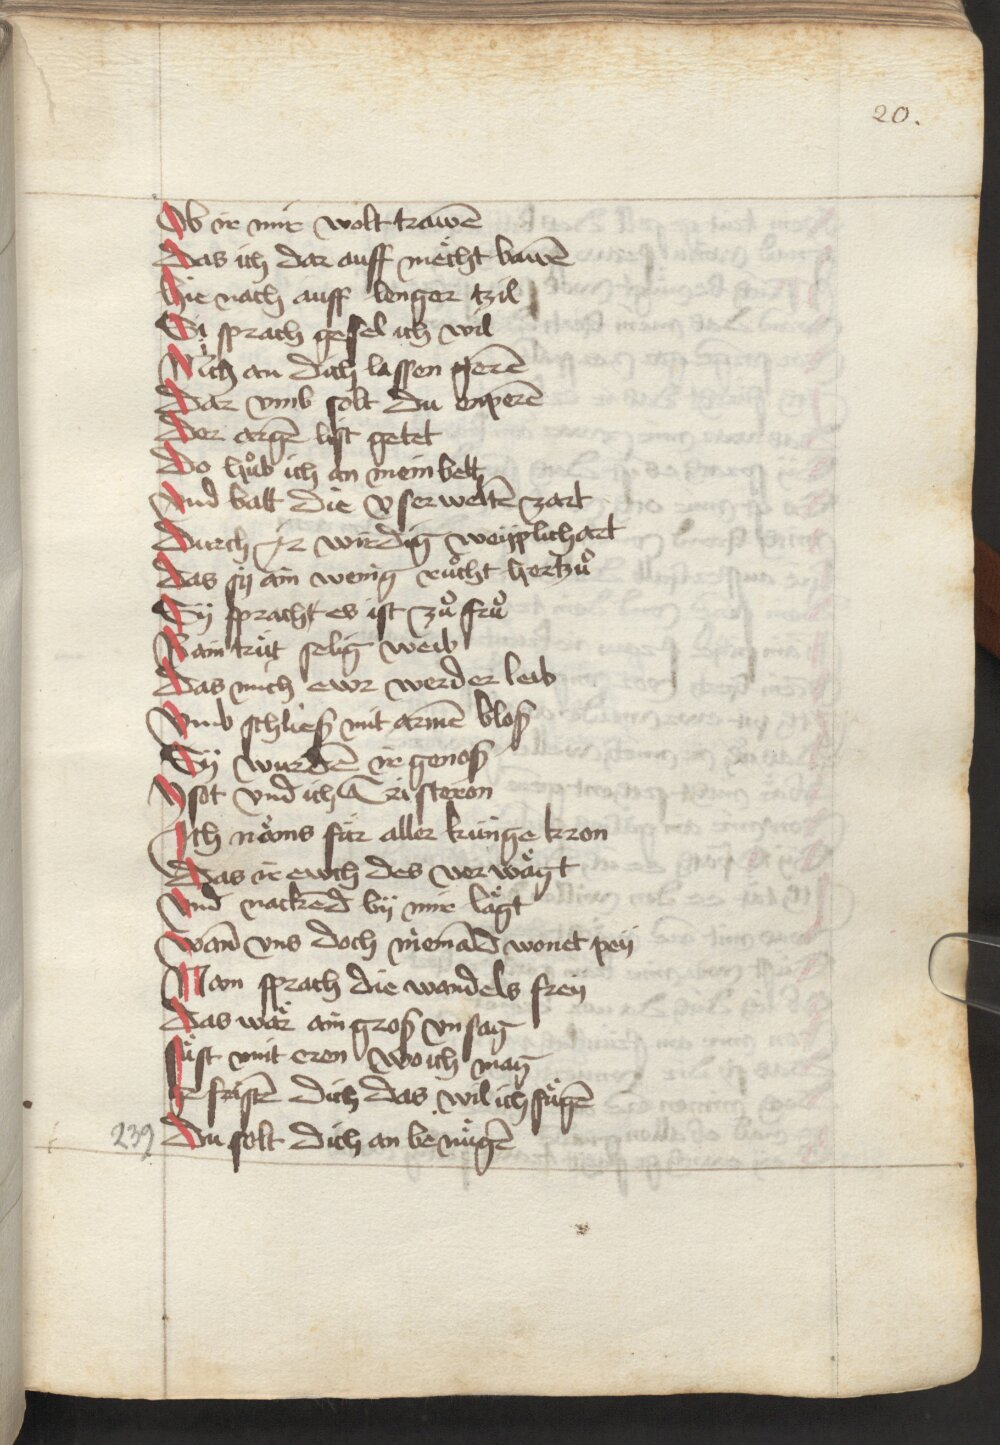 20.
Ob ir mir wolt trawē
Das ich dar auff mecht bawē
hie nach auff lenger tzil
Si sprach gesel ich wil
Mich an dich lassen gerē
Dar vmb solt du enperē
Der argē list getet
Do hůb ich an mein bett
Vnd batt die vserweltē zart
Durch ir wirdig weiplich art
Das sij ain wenig růcht herzů
Sij spracht es ist zů frů
Nain trüt selig weib
Das mich ewr werder leib
Vmb schließ mit armē bloß
Sij wurdēn ir genoß
Ysot vnd ich Tristeron
Ich näms für aller künge kron
Das ir ewch des verwägt
Vnd nackēd bij mir lägt
wann vns doch niemād wonet peij
Nain sprach die wandels freij
Das wär ain groß vnfag
süst mit eren wo ich mag
ge fristē dich das wil ich fügē
239 Du solt dich an benügē